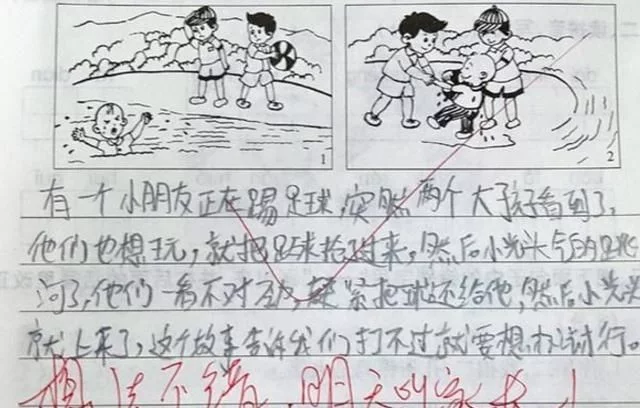 1
2
有一个小朋友正在踢足球,突然两个大孩看到了,
他们也想玩,就把足球抢过来,然后小光头气的跳
河了,他们一看不对劲,赶紧把球还给他,然后小光头
就上来了,这个故事告诉我们打不过就要想办法才行。
想法不错,明天叫家长!